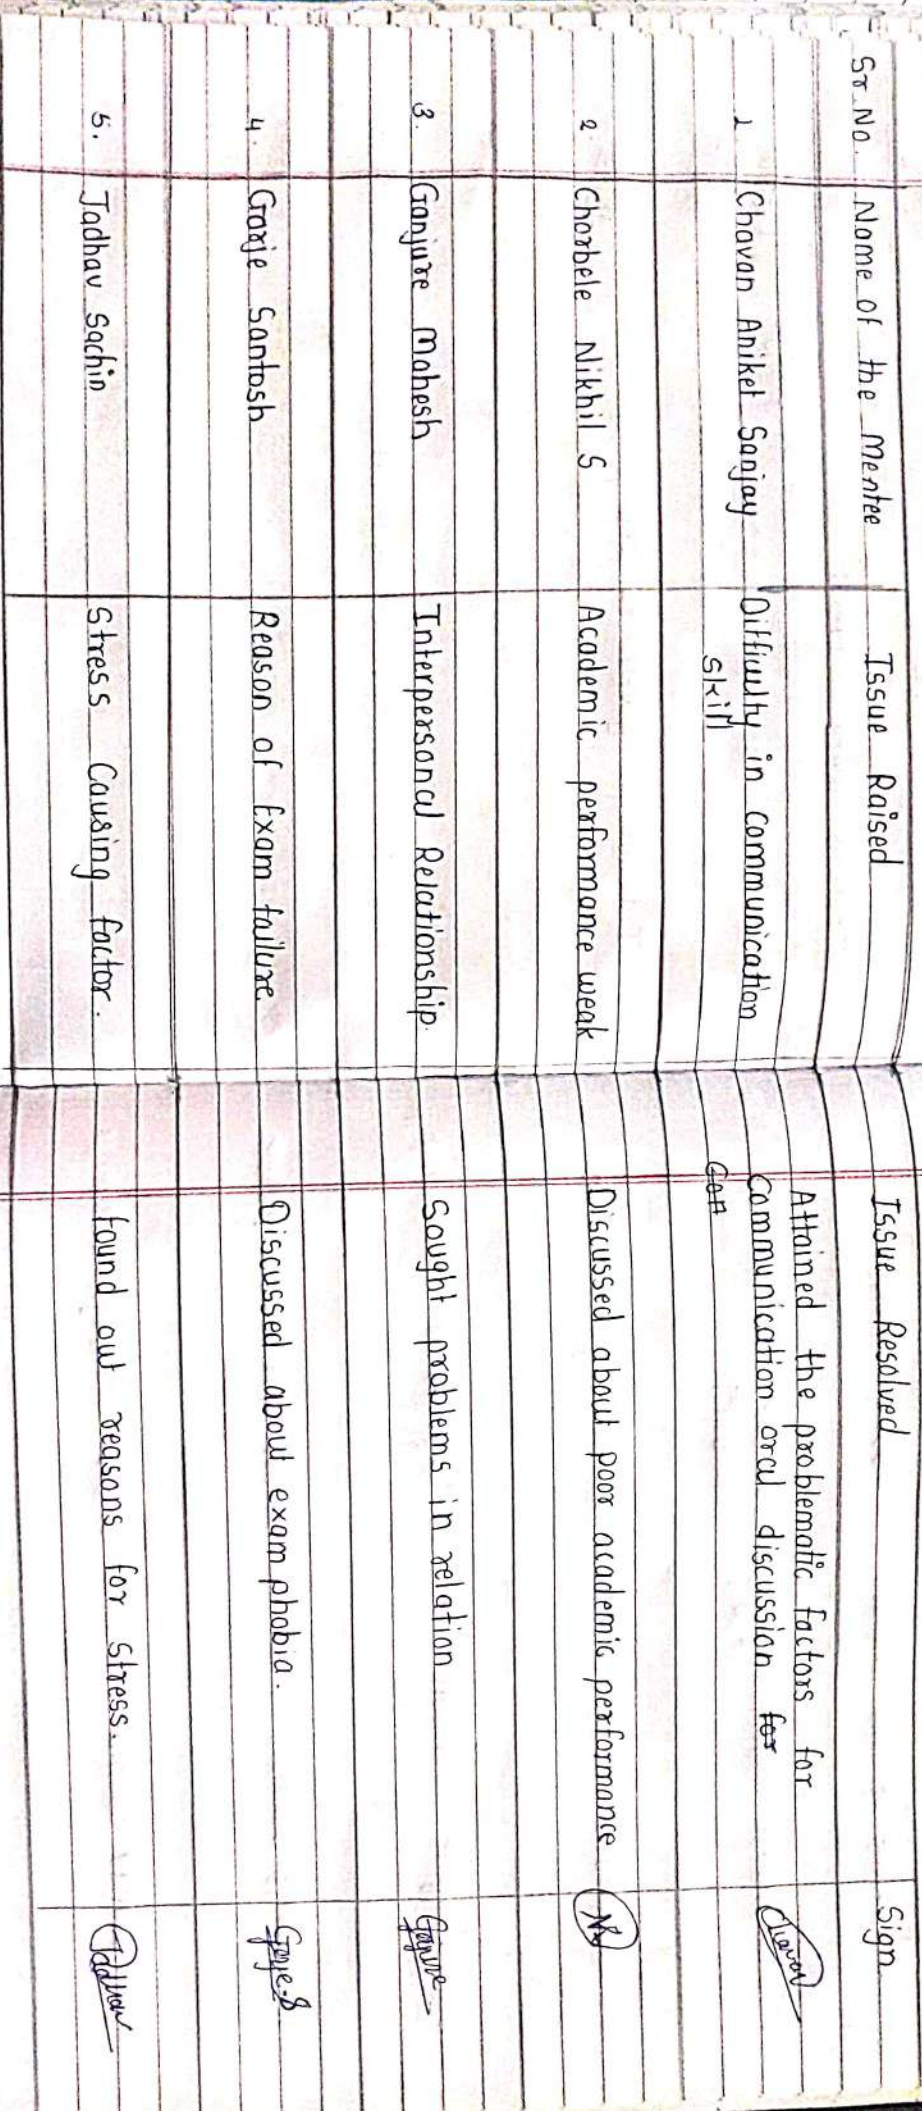 Sr. No. Name of the Mentee Issue Raised Issue Resolved Sign
1 Chavan Aniket Sanjay Difficulty in communication Attained the problematic factors for
skill Communication oral discussion for Chavan
Con
2. Chorbele Nikhil S Academic performance weak Discussed about poor academic performance
3. Ganjure Mahesh Interpersonal Relationship. Sought problems in relation Ganjure
4. Garje Santosh Reason of Exam failure. Discussed about exam phobia. Garje.S
5. Jadhav Sachin Stress Causing factor. found out reasons for stress. Jadhav